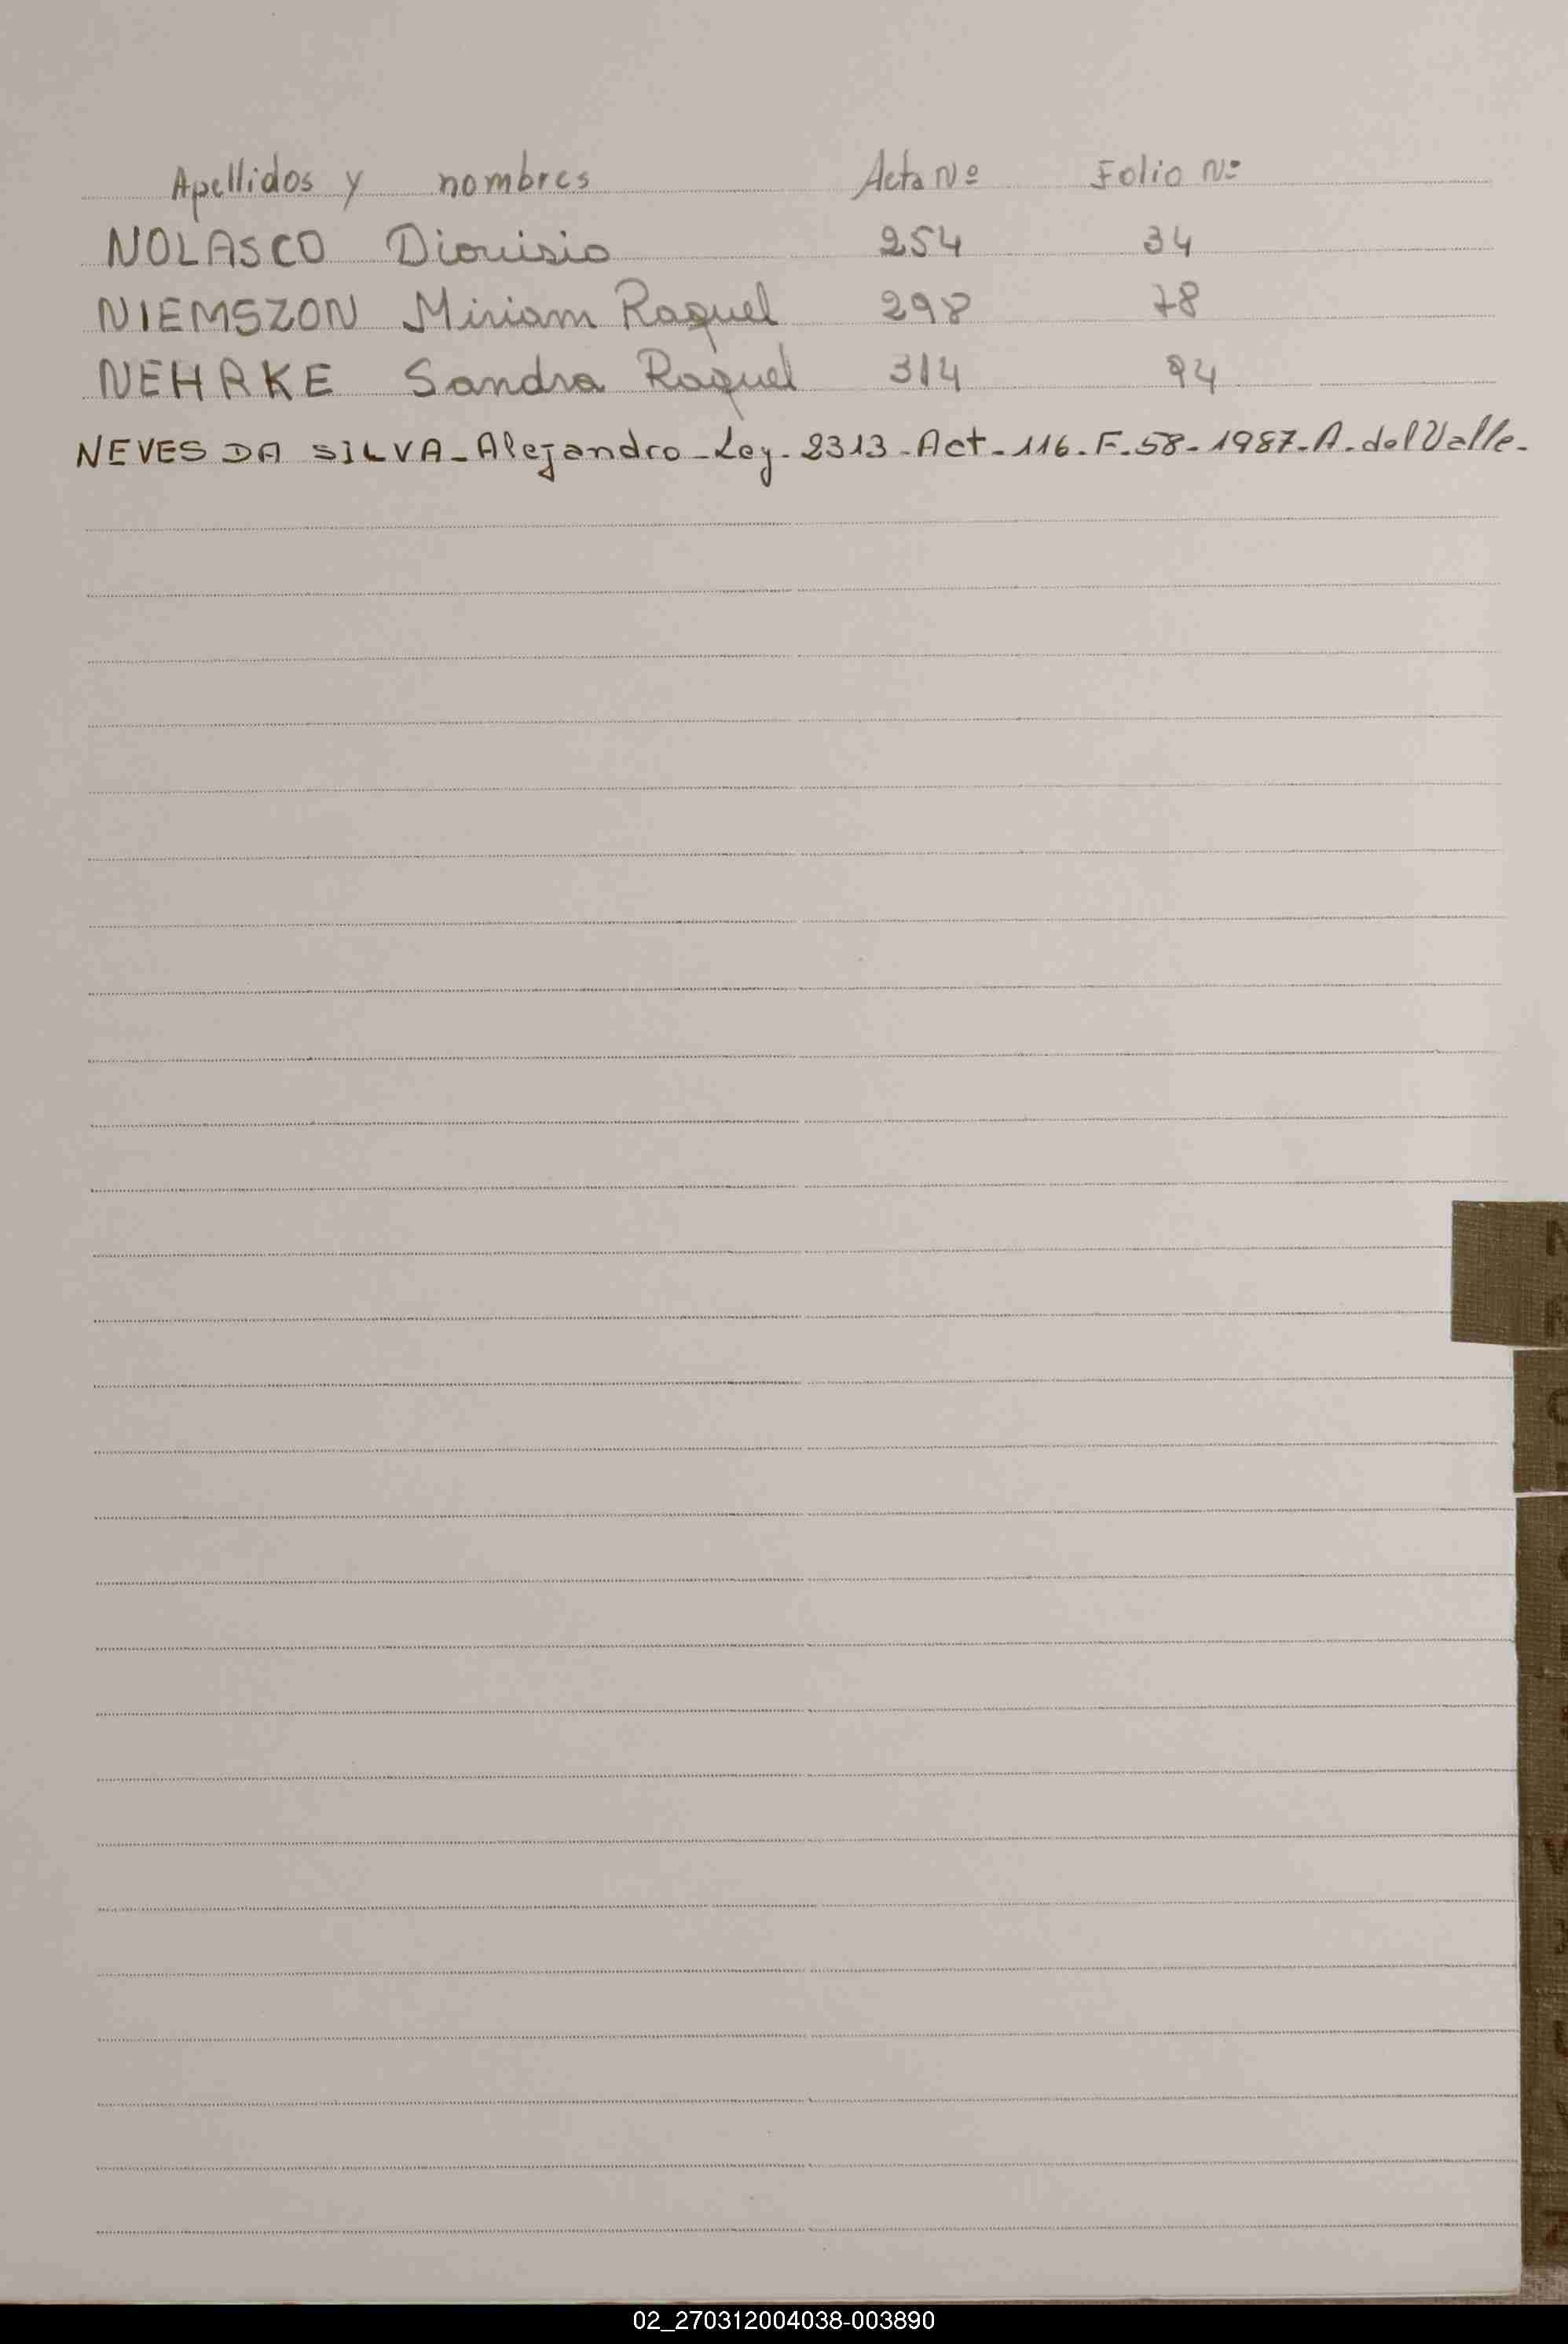 Apellidos y nombres Acta Nº Folio Nº
NOLASCO Dionisio 254 34
NIEMSZON Miriam Raquel 298 78
NEHRKE Sandra Raquel 314 94
NEVES DA SILVA - Alejandro - Ley - 2313 - Act - 116 - F - 58 - 1987 - A - del Valle -
02_270312004038-003890